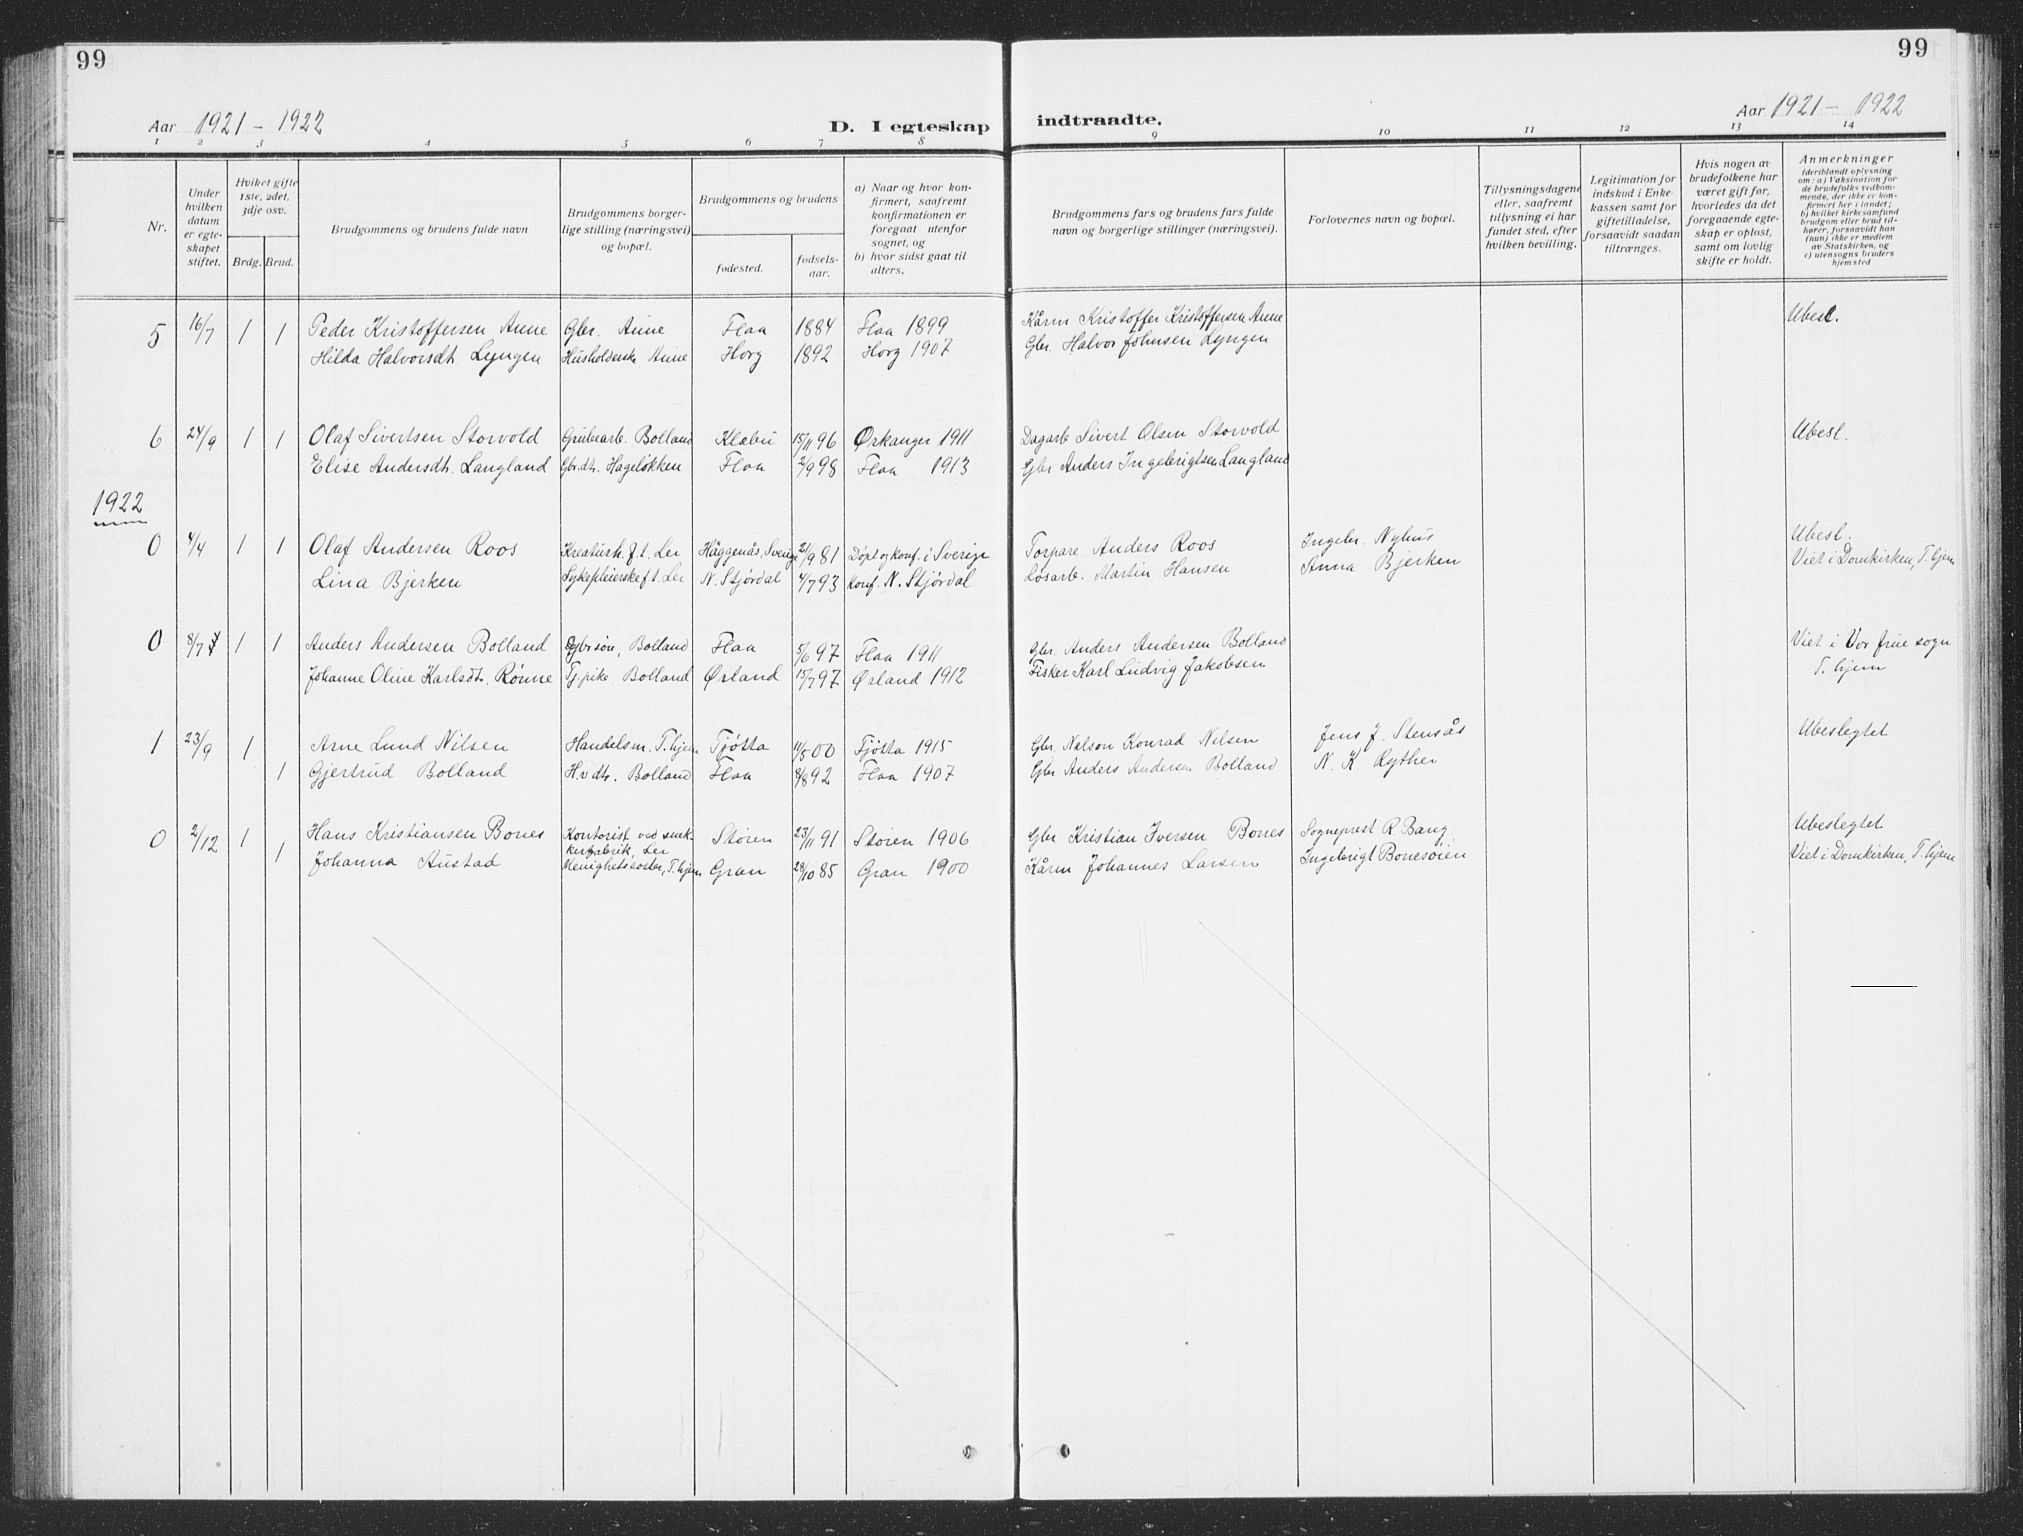 99
99
Aar 1921 - 1922
D. I egteskap
indtraadte.
Aar 1921 - 1922
1 2 3 4 5 6 7 8 9 10 11 12 13 14
Nr.
Under hvilken datum er egte-skapet stiftet.
Hviket gifte 1ste, 2det, 3dje osv.
Brdg. Brud.
Brudgommens og brudens fulde navn
Brudgommens borger-lige stilling (næringsvei) og bopæl.
Brudgommens og brudens
fødested.
fødsels-aar.
a) Naar og hvor kon-firmert, saafremt konfirmationen er foregaat utenfor sognet, og
b) hvor sidst gaat til alters.
Brudgommens fars og brudens fars fulde navn og borgerlige stillinger (næringsvei).
Forlovernes navn og bopæl.
Tillysningsdagene eller, saafremt tillysning ei har fundet sted, efter hvilken bevilling.
Legitimation for indskud i Enke-kassen samt for giftetilladelse, forsaavidt saadan tiltrænges.
Hvis nogen av brudefolkene har været gift før, hvorledes da det foregaaende egte-skap er opløst, samt om lovlig skifte er holdt.
Anmerkninger (deriblandt oplysning om: a) Vaksination for de brudefolks vedkom-mende, der ikke er kon-firmert her i landet; b) hvilket kirkesamfund brudgom eller brud til-hører, forsaavidt han (hun) ikke er medlem av Statskirken, og c) utensogns bruders hjemsted
5 16/7 1 1 Peder Kristoffersen Anne Gbr. Anne Flaa 1884 Flaa 1899 Kårm Kristoffer Kristoffersen Anne Ubesl.
Hilda Halvorsdt Lyngen Husholderske Anne Horg 1892 Horg 1907 Gbr. Halvor Johnsen Lyngen
6 24/9 1 1 Olaf Sivertsen Storvold Grubearb. Bolland Klæbu 15/11 96 Orkanger 1911 Dagarb Sivert Olsen Storvold Ubesl.
Elise Andersdt. Langland Gbrdt. Hageløkken Flaa 2/9 98 Flaa 1913 Gbr Anders Ingebrigtsen Langland
1922
0 4/4 1 1 Olaf Andersen Roos Kreaturh. f.t. Ler Häggenås, Sverige 21/9 81 Döpt og konf. i Sverige Torpare Anders Roos Ingebr. Nyhus Ubesl.
Lina Bjerken Sykepleierske f.t. Ler N. Stjördal 4/7 93 konf. N. Stjördal Løsarb. Martin Hansen Anna Bjerken Viet i Domkirken, T.hjem
0 8/7 1 1 Anders Andersen Bolland Gbrsøn, Bolland Flaa 5/6 97 Flaa 1911 Gbr. Anders Andersen Bolland Viet i Vor frue sogn
Johanne Oline Karlsdt. Rønne Tj.pike Bolland Ørland 15/7 97 Ørland 1912 Fisker Karl Ludvig Jakobsen T.hjem
1 23/9 1 Arne Lund Nilsen Handelsm. T.hjem Tjøtta 11/5 00 Tjøtta 1915 Gbr Nelson Konrad Nilsen Jens J. Stensås Ubeslegtet
1 Gjertrud Bolland H.v.dt. Bolland Flaa 8/8 92 Flaa 1907 Gbr Anders Andersen Bolland N. K. Ryther
0 2/12 1 Hans Kristiansen Bones Kontorist ved snek-kerfabrik, Ler Støren 23/11 91 Støren 1906 Gbr Kristian Iversen Bones Sogneprest R. Bang Ubeslegtet
1 Johanna Austad Menighetssøster, T.hjem Gran 28/10 85 Gran 1900 Kårm Johannes Larsen Ingebrigt Bonesøien Viet i Domkirken, T.hjem